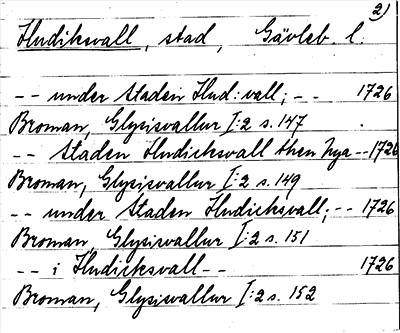 2)
Hudiksvall, stad, Gävleb. l.
-- under staden Hud:vall; -- 1726
Broman, Glysisvallur I:2 s. 147
-- Staden Hudichsvall then Nya -- 1726
Broman, Glysisvallur I:2 s. 149
-- under Staden Hudichsvall; -- 1726
Broman, Glysisvallur I:2 s. 151
-- i Hudichsvall -- 1726
Broman, Glysisvallur I:2 s. 152